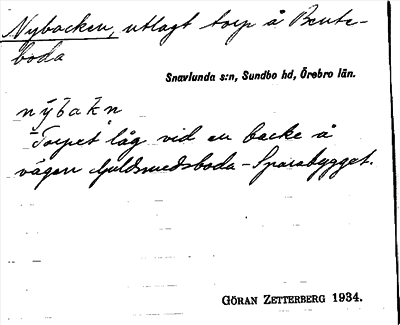 Nybacken, utlagt torp å Bente-
boda
Snavlunda s:n, Sundbo hd, Örebro län.
nỳbakn
Torpet låg vid en backe å
vägen Guldsmedsboda - Sparabygget.
GÖRAN ZETTERBERG 1934.